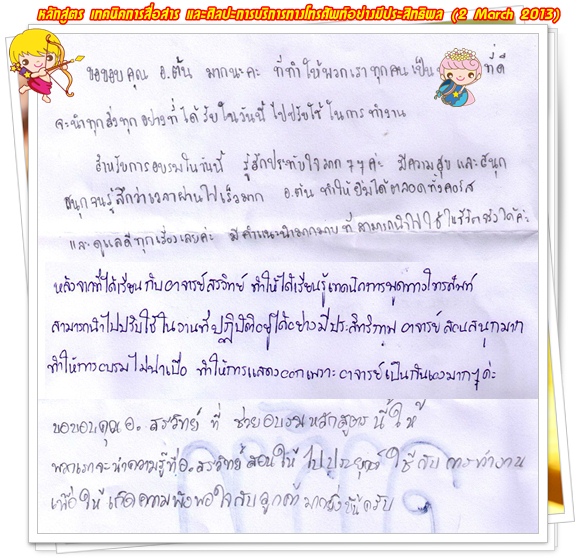 หลักสูตร เทคนิคการสื่อสาร และศิลปะการบริการทางโทรศัพท์อย่างมีประสิทธิผล (2 March 2013)
ขอขอบคุณ อ.ต้น มากนะคะ ที่ทำให้พวกเราทุกคนเป็น ที่ดี
จะนำทุกสิ่งทุกอย่างที่ได้รับในวันนี้ไปปรับใช้ในการทำงาน
สำหรับการอบรมในวันนี้ รู้สึกประทับใจมากๆๆค่ะ มีความสุข และสนุก
สนุกจนรู้สึกว่าเวลาผ่านไปเร็วมาก อ.ต้น ทำให้ยิ้มได้ตลอดทั้งคอร์ส
และดูแลดีทุกเรื่องเลยค่ะ มีคำแนะนำมากมายที่สามารถนำไปใช้ในชีวิตจริงได้ค่ะ
หลังจากที่ได้เรียนกับอาจารย์สรวิทย์ ทำให้ได้เรียนรู้เทคนิคการพูดทางโทรศัพท์
สามารถนำไปปรับใช้ในงานที่ปฏิบัติอยู่ได้อย่างมีประสิทธิภาพ อาจารย์สอนสนุกมาก
ทำให้การอบรมไม่น่าเบื่อ ทำให้การแสดงออกเพราะอาจารย์เป็นกันเองมากๆค่ะ
ขอขอบคุณ อ. สรวิทย์ ที่ ช่วยอบรมหลักสูตรนี้ให้
พวกเราจะนำความรู้ที่อ.สรวิทย์ สอนให้ ไปประยุกต์ ใช้กับการทำงาน
เพื่อให้เกิดความพึงพอใจกับลูกค้ามากยิ่งขึ้นครับ